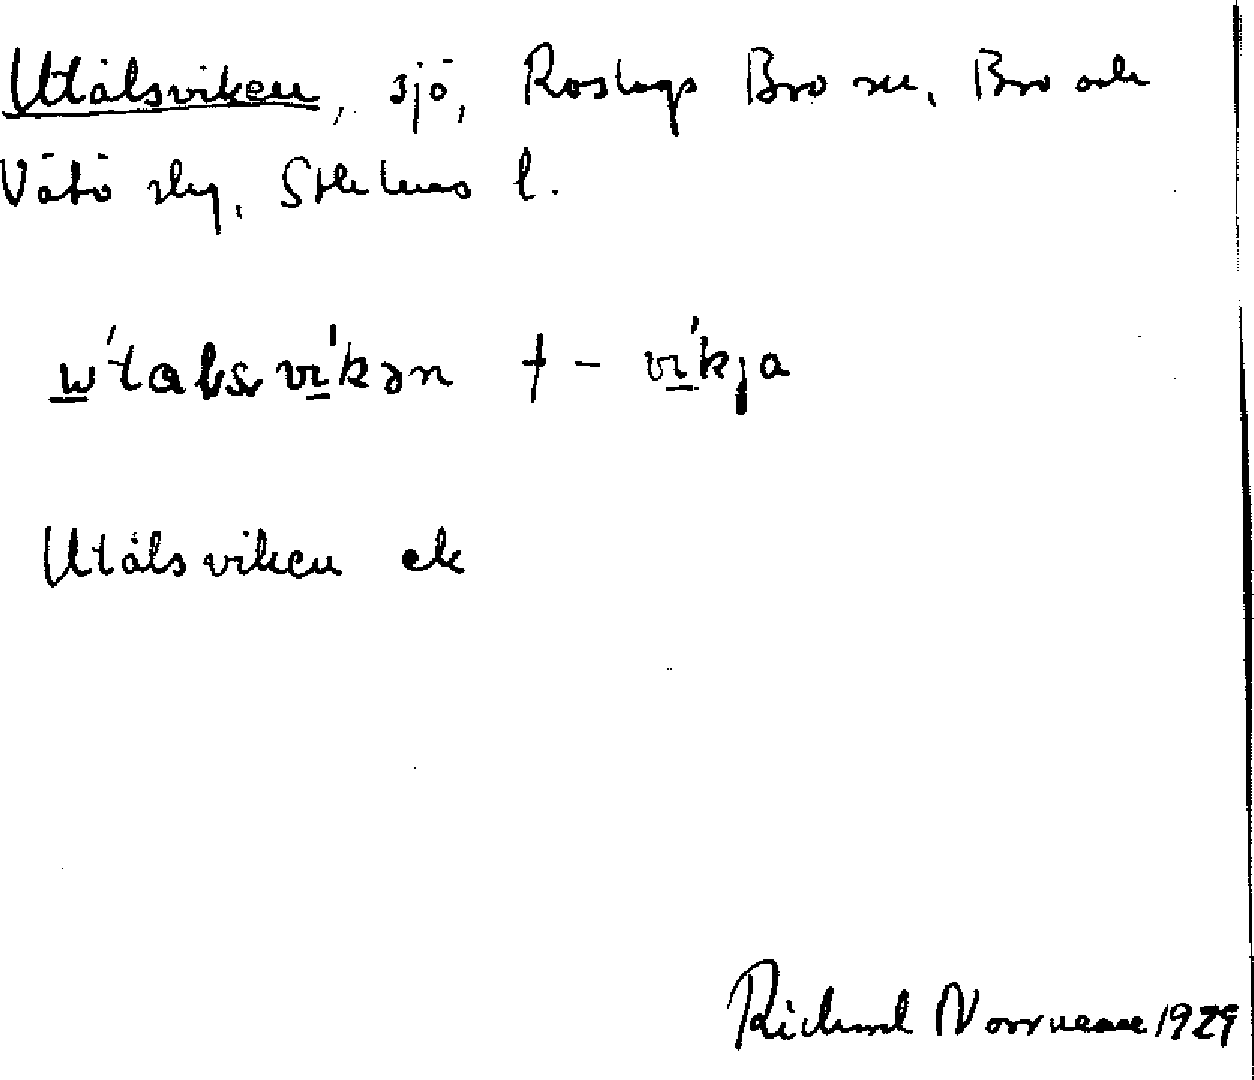 Utålsviken, sjö, Roslags Bro sn, Bro och
Vätö sky, Sthlms l.
w'talsvi'kən † - vi'kja
Utålsviken ek
Richard Norrman 1929